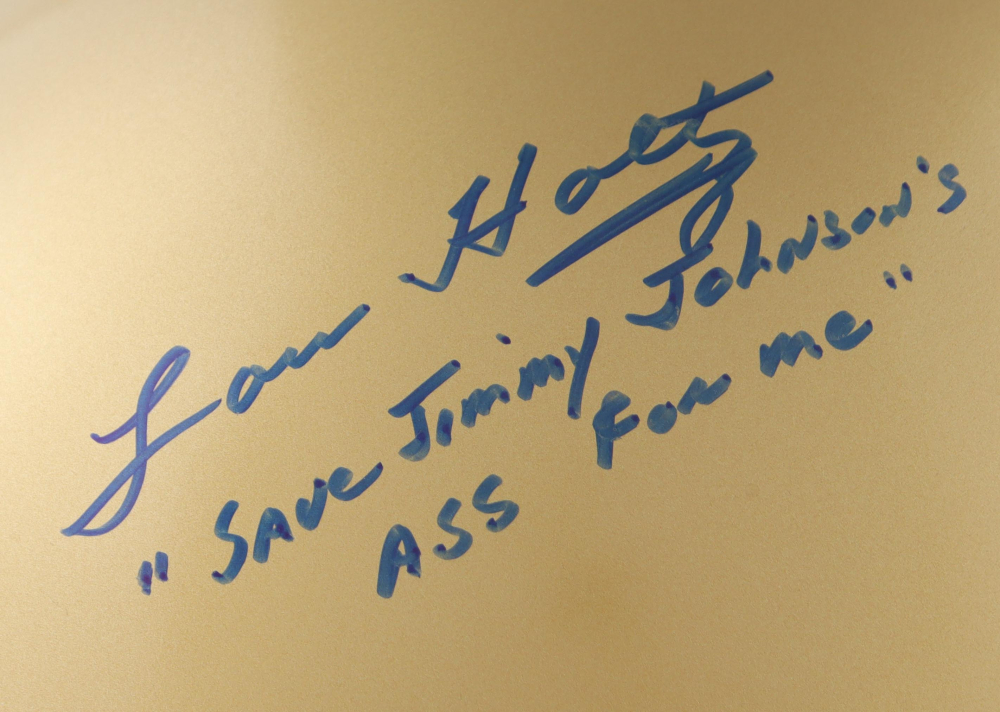 Lou Holtz
"SAVE Jimmy Johnson's
ASS FOR me"